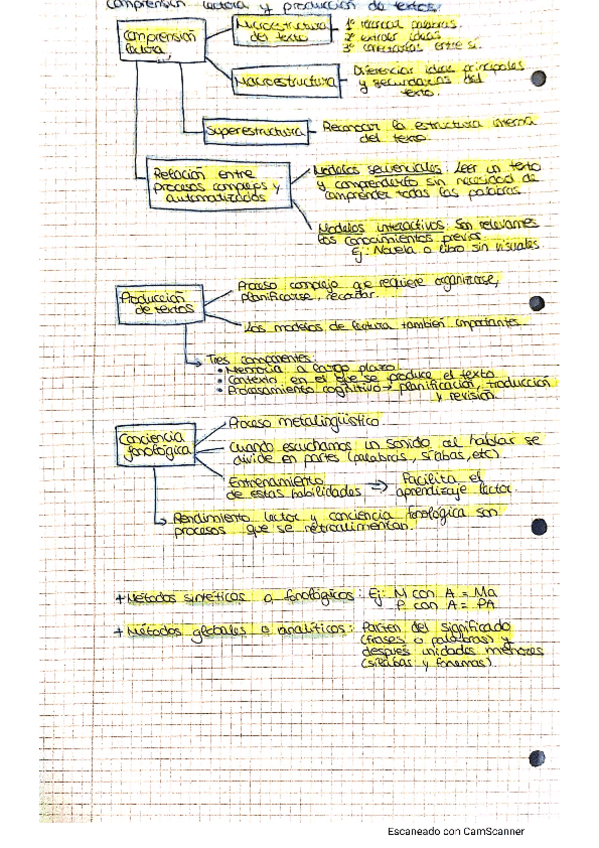 Comprensión lectora y producción de textos:
Comprensión
lectora
Microestructura
del texto
1º reconocer palabras.
2º extraer ideas
3º conectarlas entre sí.
Macroestructura
Diferenciar ideas principales
y secundarias del
texto.
Superestructura
Reconocer la estructura interna
del texto.
Relación entre
procesos complejos y
automatizados
Modelos secuenciales: Leer un texto
y comprenderlo sin necesidad de
comprender todas las palabras
Modelos interactivos: Son relevantes
los conocimientos previos.
Ej: Novela o libro sin visuales
Producción
de textos
Proceso complejo que requiere organizarse,
planificarse, recordar.
Los modelos de lectura también importantes.
Tres componentes:
• Memoria a largo plazo
• Contexto en el que se produce el texto
• Procesamiento cognitivo → planificación, traducción
y revisión.
Conciencia
fonológica
Proceso metalingüístico
Cuando escuchamos un sonido al hablar se
divide en partes (palabras, sílabas, etc).
Entrenamiento
de estas habilidades → Facilita el
aprendizaje lector.
Rendimiento lector y conciencia fonológica son
procesos que se retroalimentan.
+ Métodos sintéticos o fonológicos: Ej: M con A = Ma
P con A = PA
+ Métodos globales o analíticos: Parten del significado
(frases o palabras) y
después unidades menores
(sílabas y fonemas)
Escaneado con CamScanner